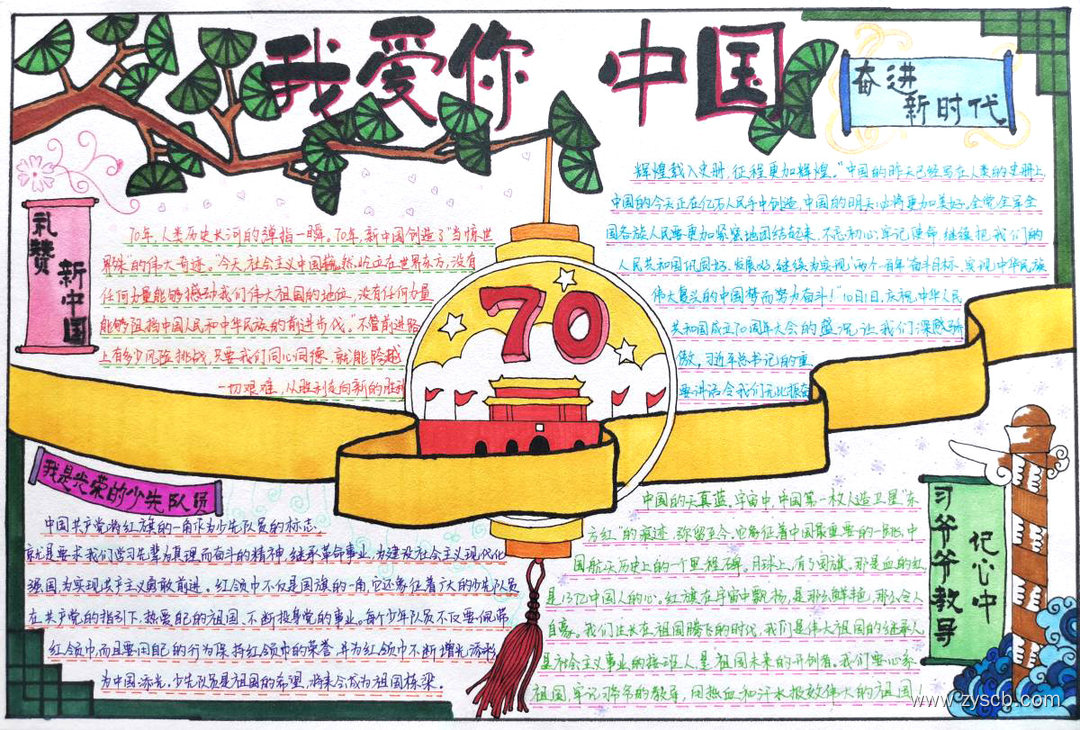 我爱你 中国
奋进
新时代
礼赞
新中国
70年,人类历史长河的弹指一瞬。70年,新中国创造了“当惊世
界殊”的伟大奇迹。“今天,社会主义中国巍然屹立在世界东方,没有
任何力量能够撼动我们伟大祖国的地位,没有任何力量
能够阻挡中国人民和中华民族的前进步伐。”不管前进路
上有多少风险挑战,只要我们同心同德,就能跨越
一切艰难,从胜利走向新的胜利
辉煌载入史册,征程更加辉煌。“中国的昨天已经写在人类的史册上,
中国的今天正在亿万人民手中创造,中国的明天必将更加美好。全党全军全
国各族人民要更加紧密地团结起来,不忘初心,牢记使命,继续把我们的
人民共和国巩固好、发展好,继续为实现“两个一百年”奋斗目标、实现中华民族
伟大复兴的中国梦而努力奋斗!”10月1日,庆祝中华人民
共和国成立70周年大会的盛况,让我们深感骄
傲,习近平总书记的重
要讲话令我们无比振奋
70
我是光荣的少先队员
中国共产党将红旗的一角作为少先队员的标志.
就是要求我们学习先辈为真理而奋斗的精神,继承革命事业,为建设社会主义现代化
强国,为实现共产主义勇敢前进。红领巾不仅是国旗的一角,它还象征着广大的少先队员
在共产党的指引下,热爱自己的祖国,不断投身党的事业。每个少年队员不仅要佩带
红领巾,而且要用自己的行为保持红领巾的荣誉,并为红领巾不断增光添彩
为中国添光,少先队员是祖国的希望,将来会成为祖国栋梁.
中国的天真蓝,宇宙中,中国第一枚人造卫星“东
方红”的痕迹,弥留至今,它象征着中国最重要的一段,中
国航天历史上的一个里程碑,月球上,有了国旗,那是血的红
是13亿中国人的心。红旗在宇宙中飘扬,是那么鲜艳,那么令人
自豪。我们生长在祖国腾飞的时代,我们是伟大祖国的继承人
是社会主义事业的接班人,是祖国未来的开创者。我们要心系
祖国,牢记爷爷的教导,用热血和汗水报效伟大的祖国
习爷爷教导
记心中
www.zyscb.com